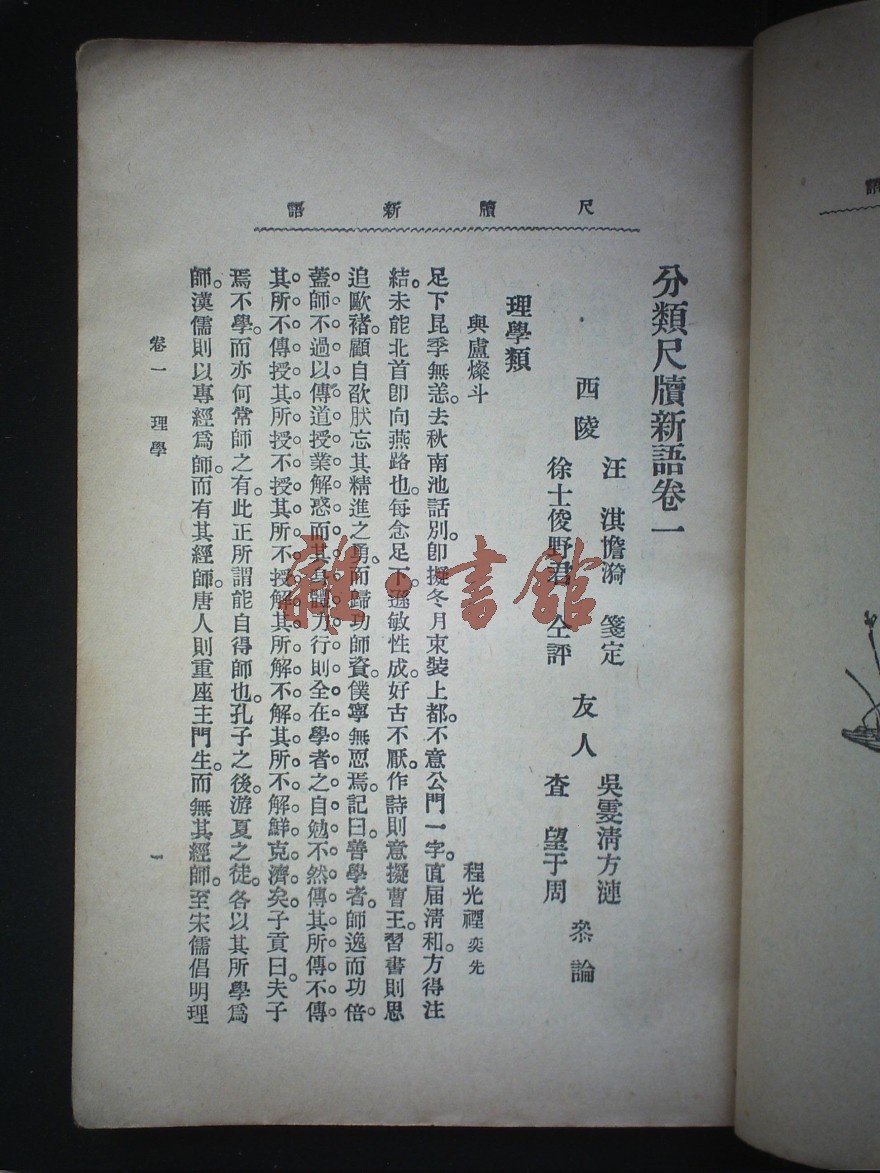 尺牘新語
分類尺牘新語卷一
西陵
汪淇憺漪箋定
徐士俊野君仝評
友人
吳雯清方漣
查望于周
叅論
理學類
與盧燦斗
程光禋奕先
足下昆季無恙。去秋南池話別。卽擬冬月束裝上都。不意公門一字。直届清和。方得注
結。未能北首卽向燕路也。每念足下。遜敏性成。好古不厭。作詩則意擬曹王。習書則思
追歐褚。顧自欿肰忘其精進之勇。而歸功師資。僕寧無恧焉。記曰。善學者。師逸而功倍。
蓋師不過以傳道授業解惑。而其身體力行則全在學者之自勉。不然傳其所傳。不傳
其所不傳。授其所授。不授其所不授。解其所解。不解其所不解。鮮克濟矣。子貢曰。夫子
焉不學。而亦何常師之有。此正所謂能自得師也。孔子之後。游夏之徒。各以其所學爲
師。漢儒則以專經爲師。而有其經師。唐人則重座主門生。而無其經師。至宋儒倡明理
卷一 理學
一
雜·書館